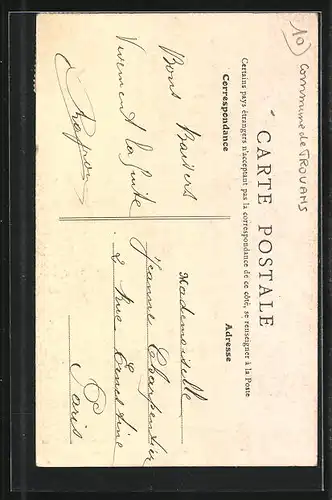 10) Commune de TROUANS
CARTE POSTALE
Certains pays étrangers n'acceptant pas la correspondance de ce côté, se renseigner à la Poste
Correspondance
Adresse
Bons Baisers
Vivement la suite
Mademoiselle
Jeanne Charpentier
2 Rue Ernestine
Paris